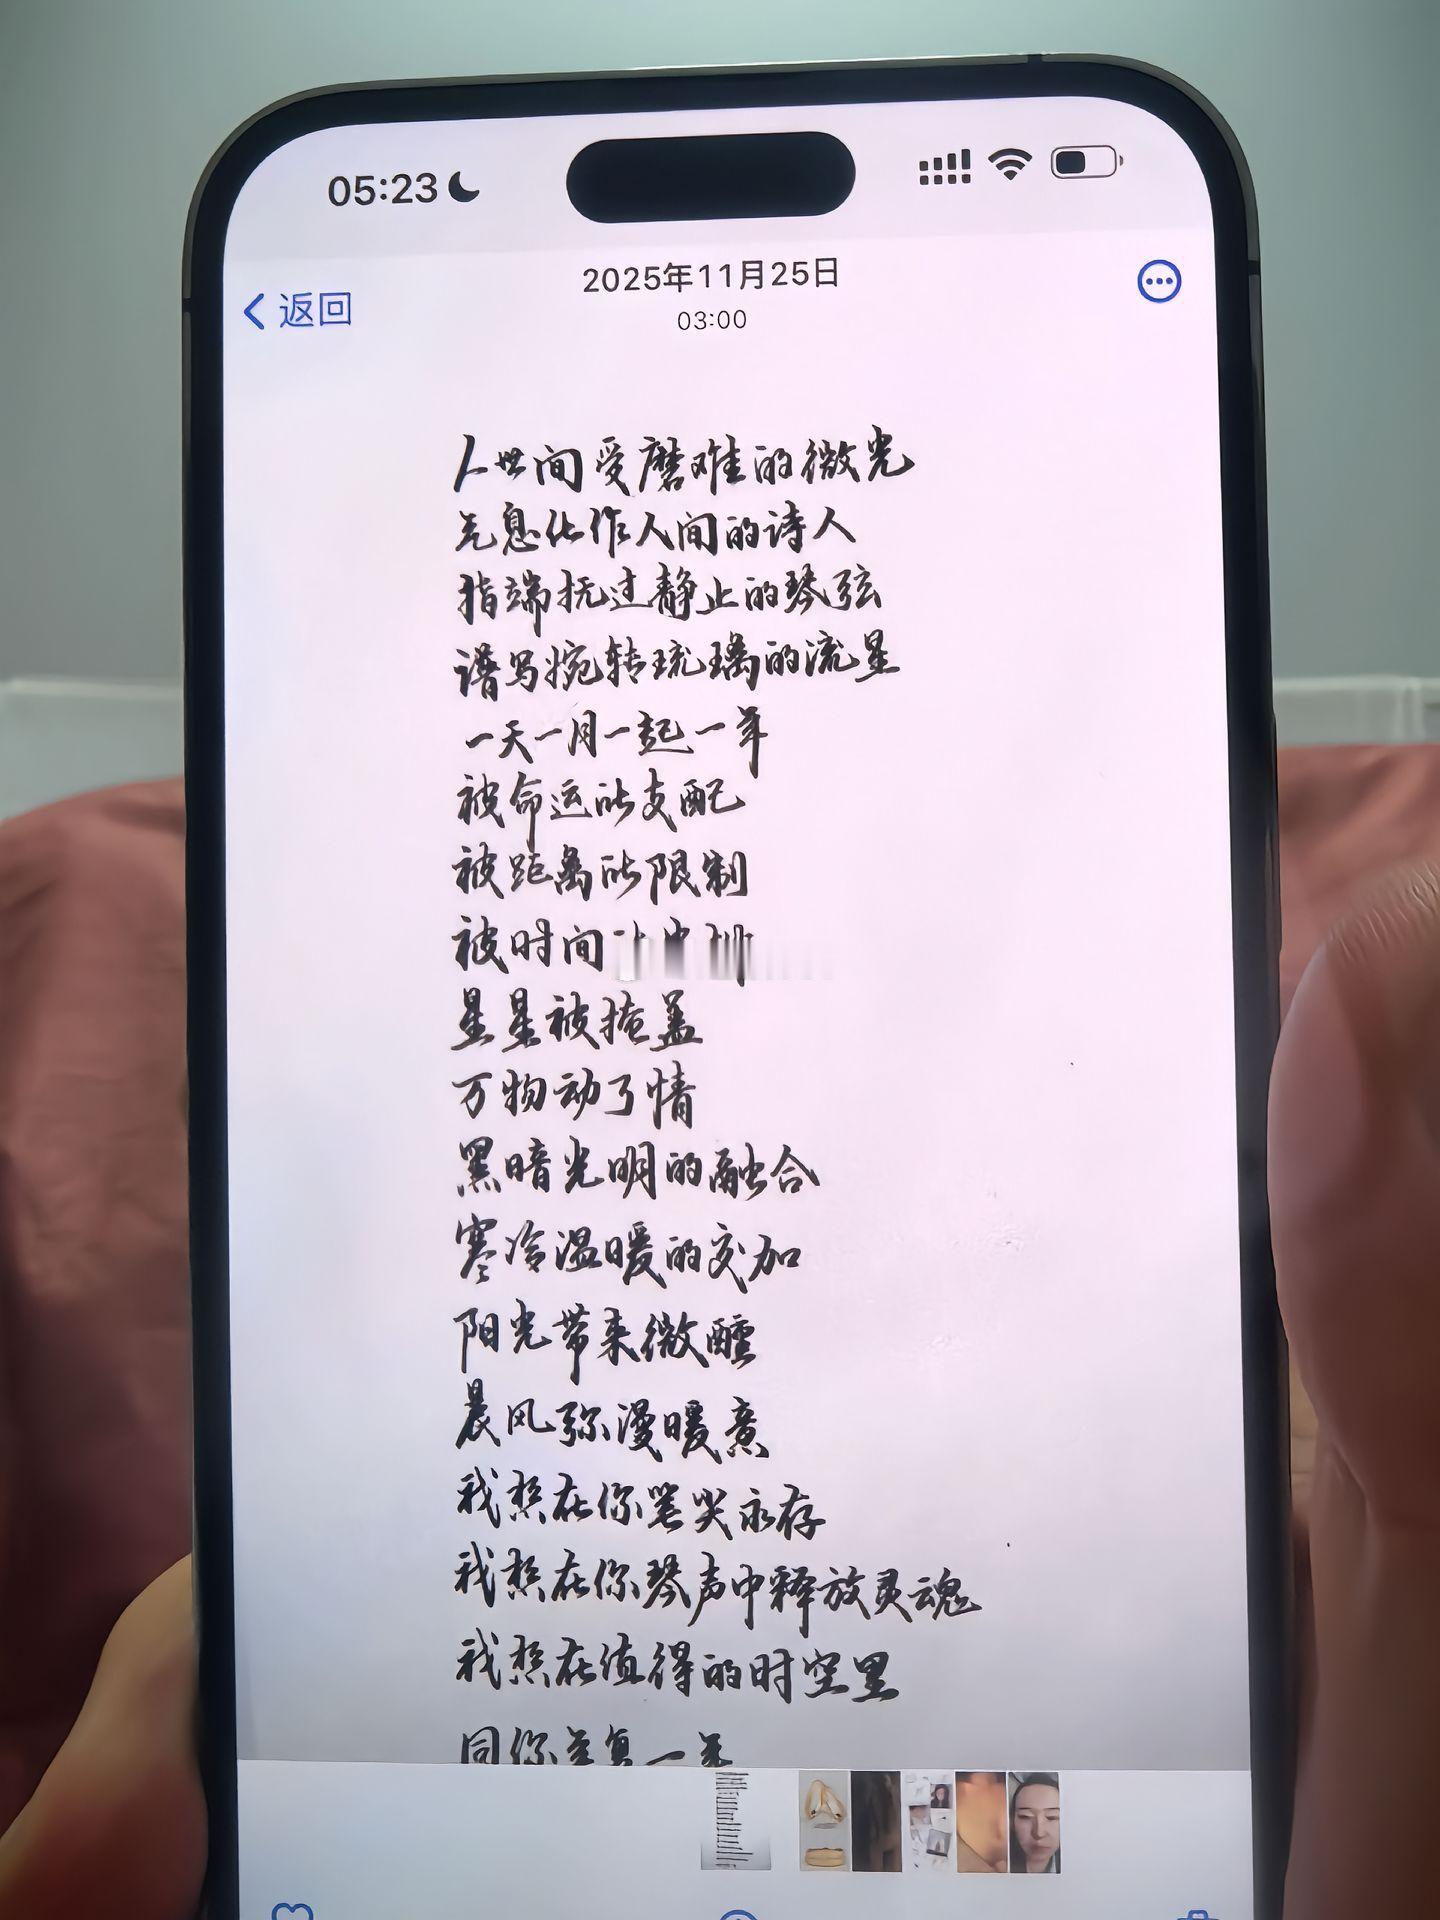 05:23
2025年11月25日
03:00
返回
人世间受磨难的微光
气息化作人间的诗人
指端抚过静止的琴弦
谱写婉转琉璃的流星
一天一月一起一年
被命运所支配
被距离所限制
被时间
星星被掩盖
万物动了情
黑暗光明的融合
寒冷温暖的交加
阳光带来微醺
晨风弥漫暖意
我想在你笔尖永存
我想在你琴声中释放灵魂
我想在值得的时空里
同你 一年